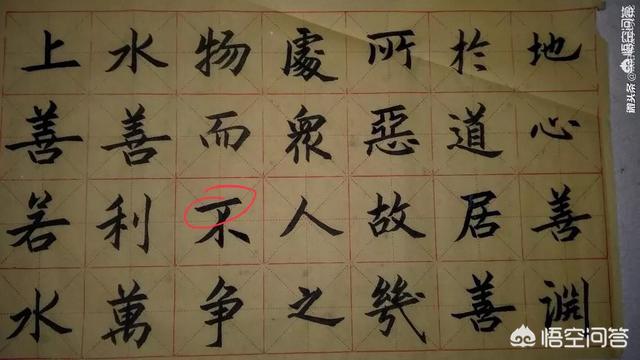 上善若水
水善利萬
物而不争
處衆人之
所惡故幾
於道居善
地心善淵
悟空问答
微头条
悟空问答